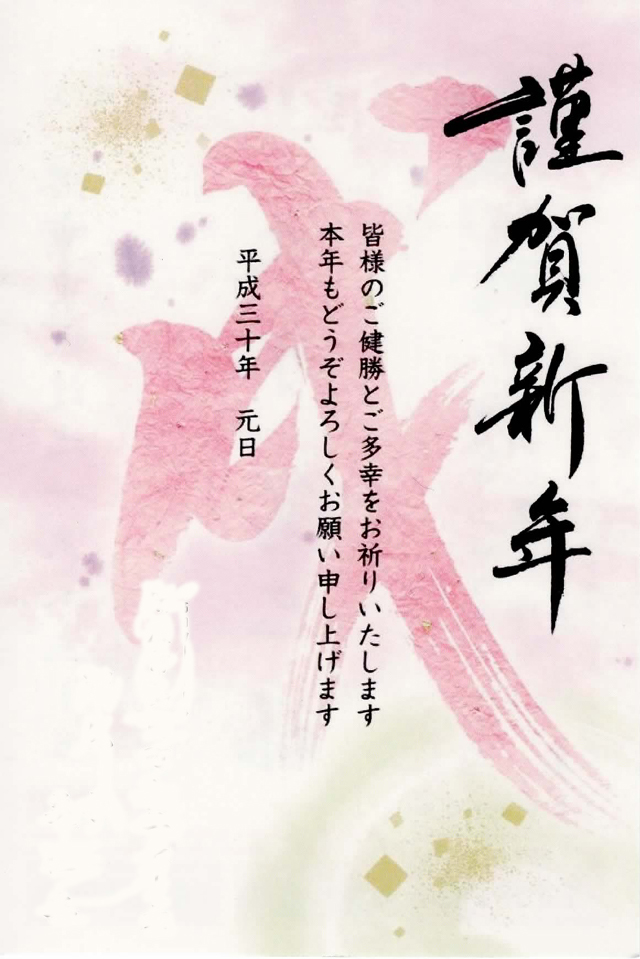 謹賀新年
皆様のご健勝とご多幸をお祈りいたします
本年もどうぞよろしくお願い申し上げます
平成三十年　元日
戌